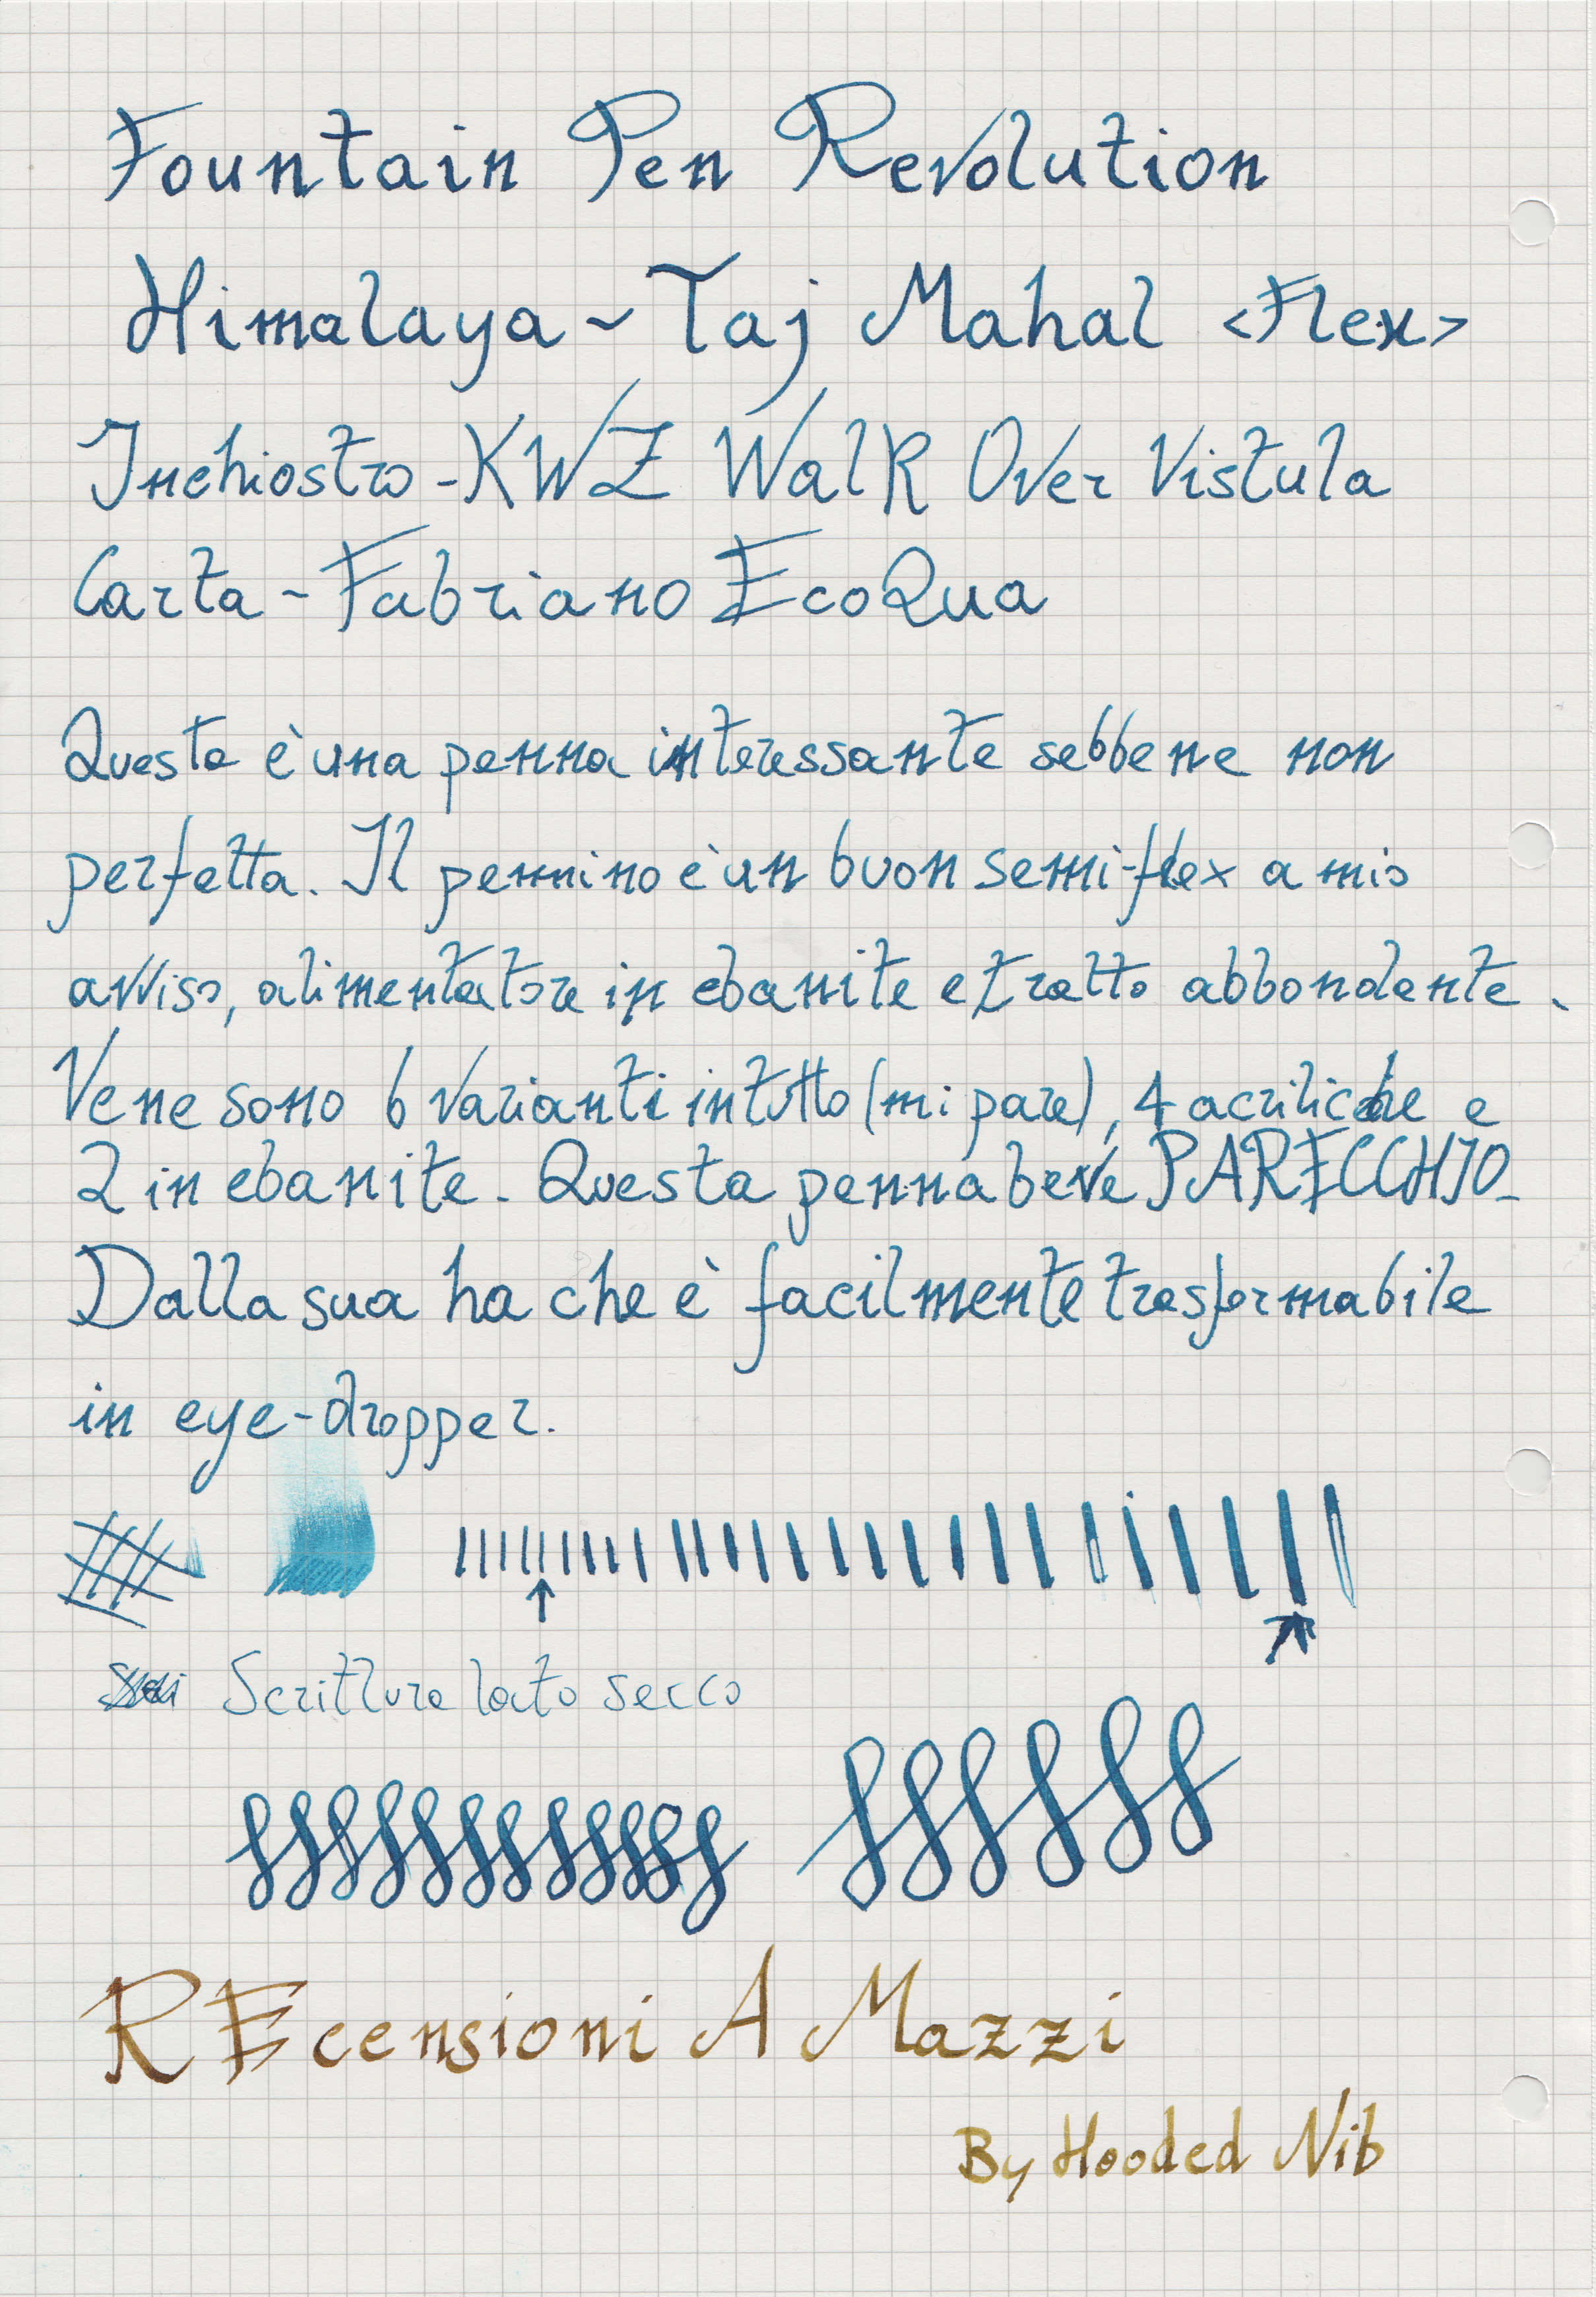 Fountain Pen Revolution
Himalaya ~ Taj Mahal <Flex>
Inchiostro - KWZ Walk Over Vistula
Carta - Fabriano EcoQua
Questa è una penna interessante sebbene non
perfetta. Il pennino è un buon semi-flex a mio
avviso, alimentatore in ebanite e tratto abbondante.
Ve ne sono 6 varianti in tutto (mi pare), 4 acriliche e
2 in ebanite. Questa penna beve PARECCHIO.
Dalla sua ha che è facilmente trasformabile
in eye-dropper.
Scrittura lato secco
REcensioni A Mazzi
By Hooded Nib